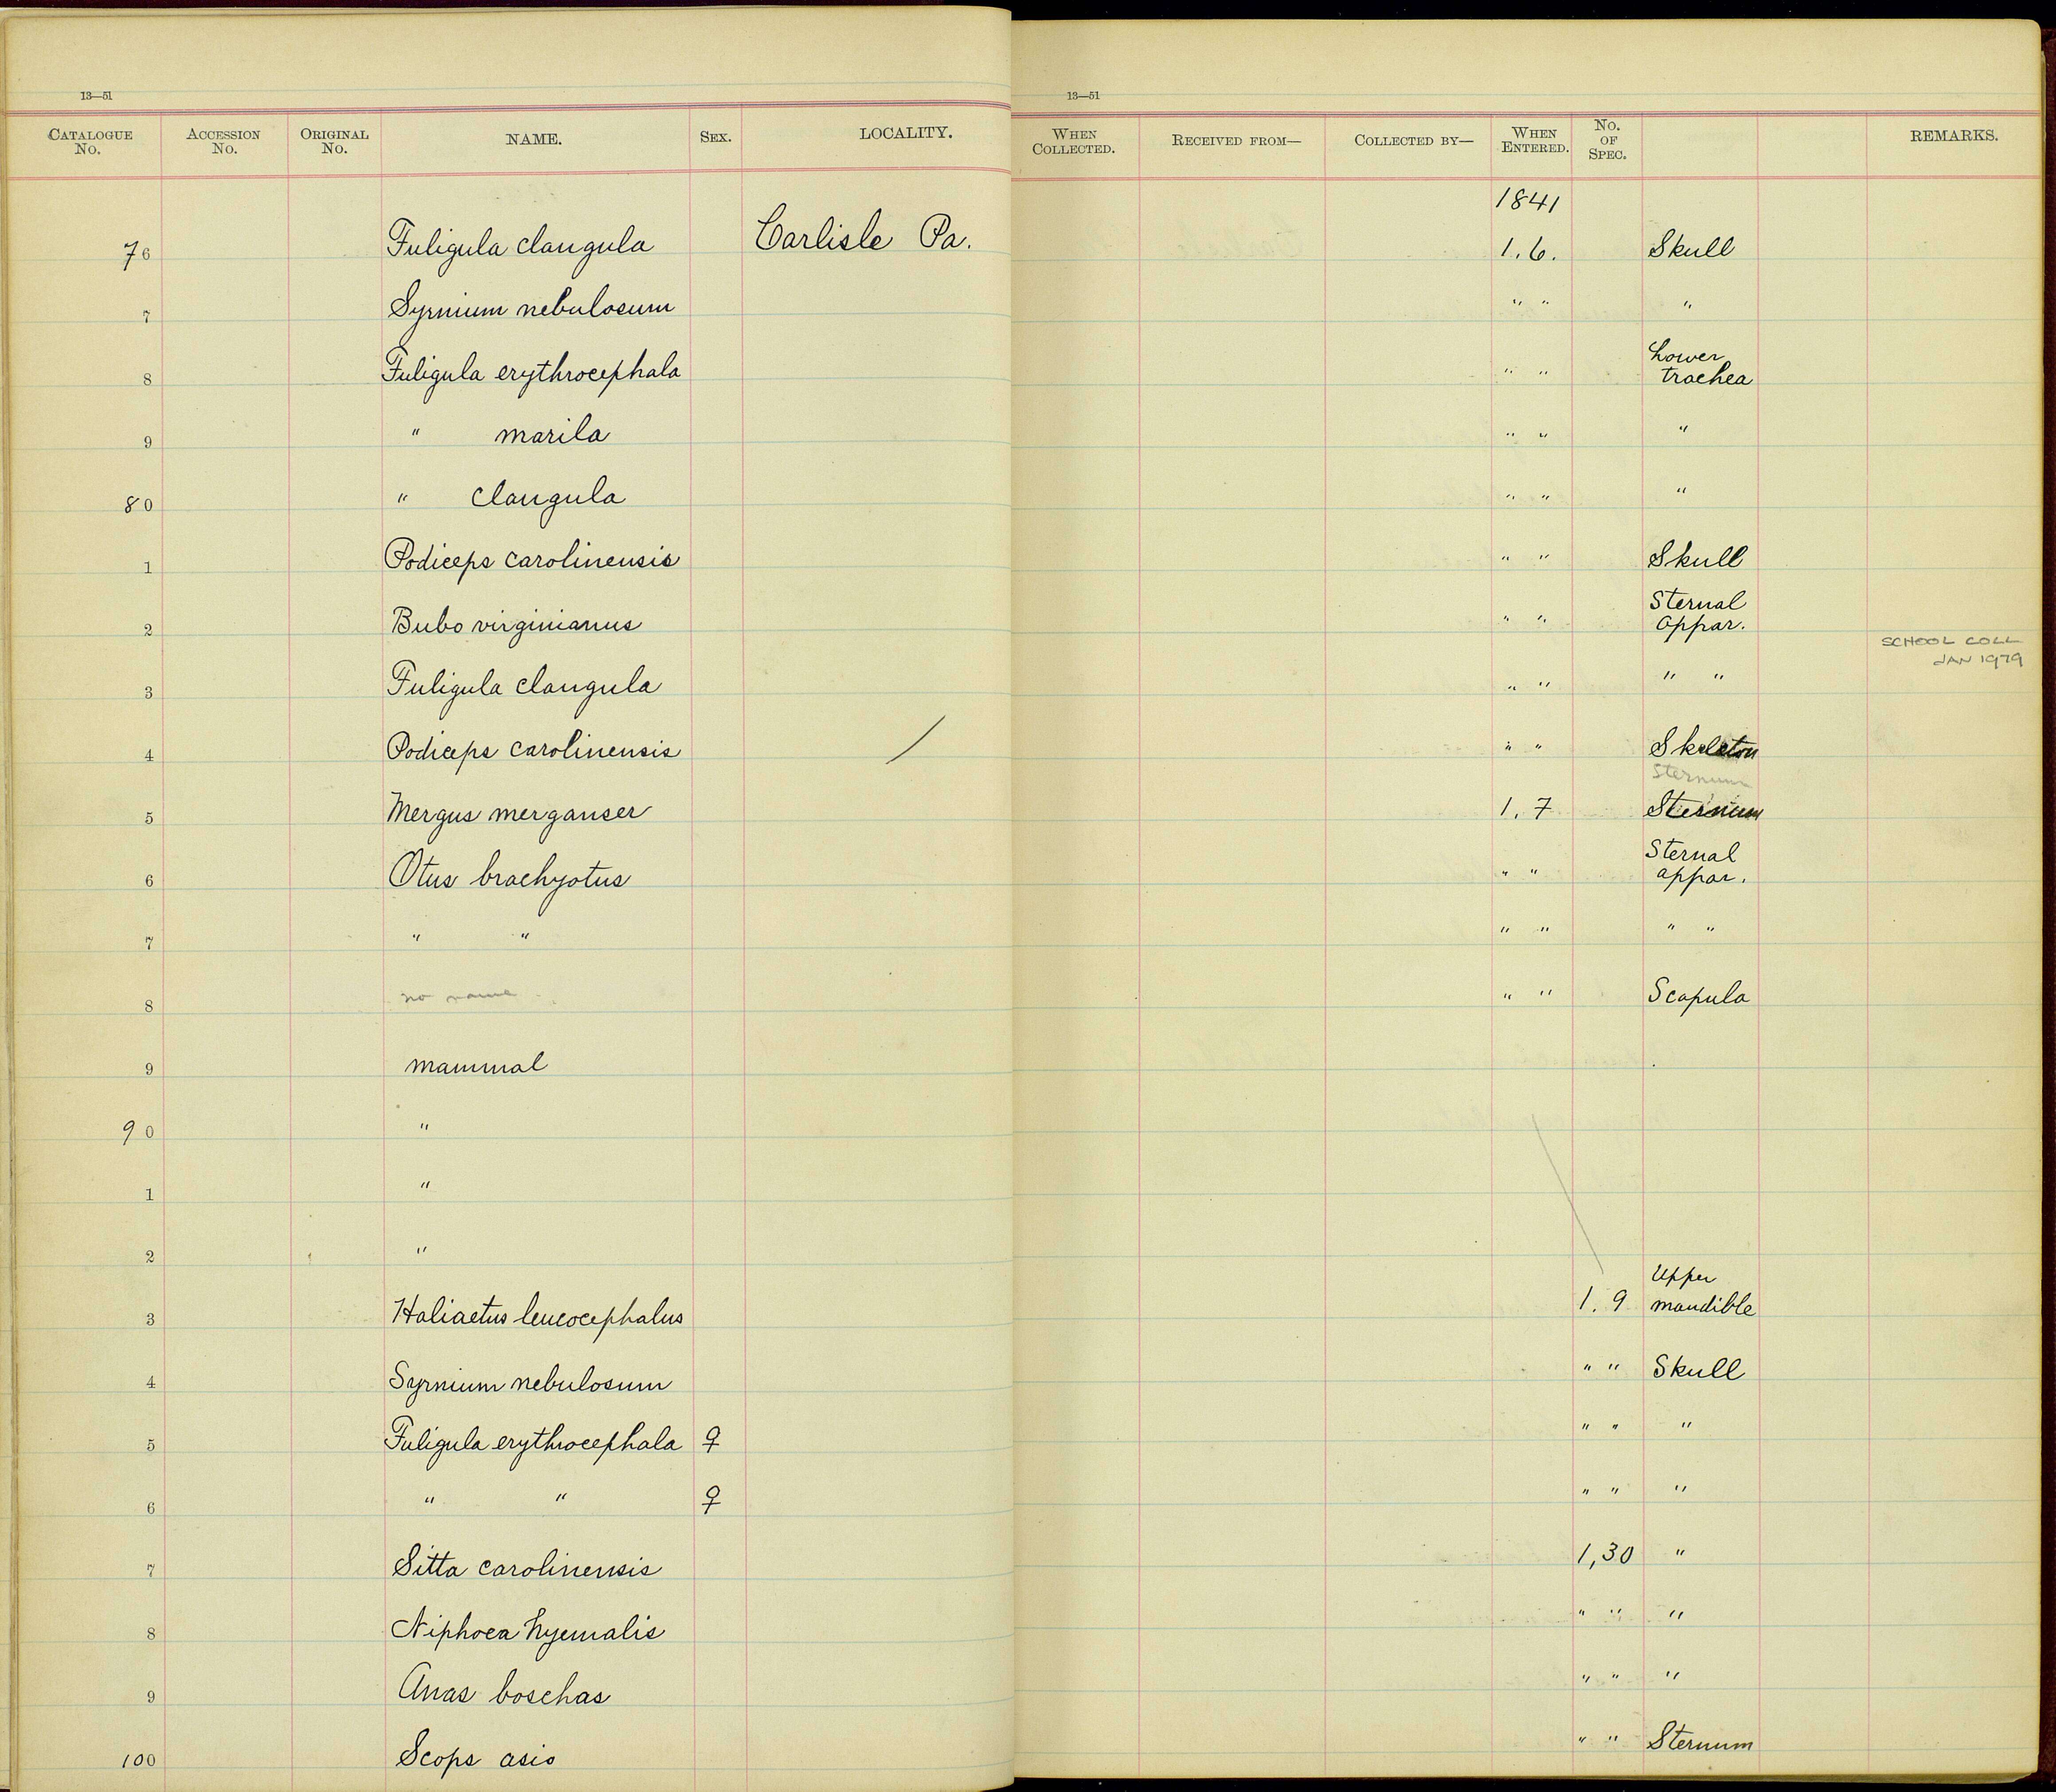 13—51 13—51
CATALOGUE No. ACCESSION No. ORIGINAL No. NAME. SEX. LOCALITY. WHEN COLLECTED. RECEIVED FROM— COLLECTED BY— WHEN ENTERED. No. OF SPEC. REMARKS.
1841
76 Fuligula clangula Carlisle Pa. 1.6. Skull
7 Syrnium nebulosum " " "
8 Fuligula erythrocephala " " Lower trachea
9 " marila " " "
80 " clangula " " "
1 Podiceps carolinensis " " Skull
2 Bubo virginianus " " Sternal appar.
SCHOOL COLL
JAN 1979
3 Fuligula clangula " " " "
4 Podiceps carolinensis / " " Skeleton
Sternum
5 Mergus merganser 1. 7 Sternum
6 Otus brachyotus " " Sternal appar.
7 " " " " " "
8 no name " " Scapula
9 mammal
90 "
1 "
2 "
3 Haliaetus leucocephalus 1. 9 Upper mandible
4 Syrnium nebulosum " " Skull
5 Fuligula erythrocephala ♀ " " "
6 " " ♀ " " "
7 Sitta carolinensis 1,30 "
8 Niphoea hyemalis " " "
9 Anas boschas " " "
100 Scops asio " " Sternum